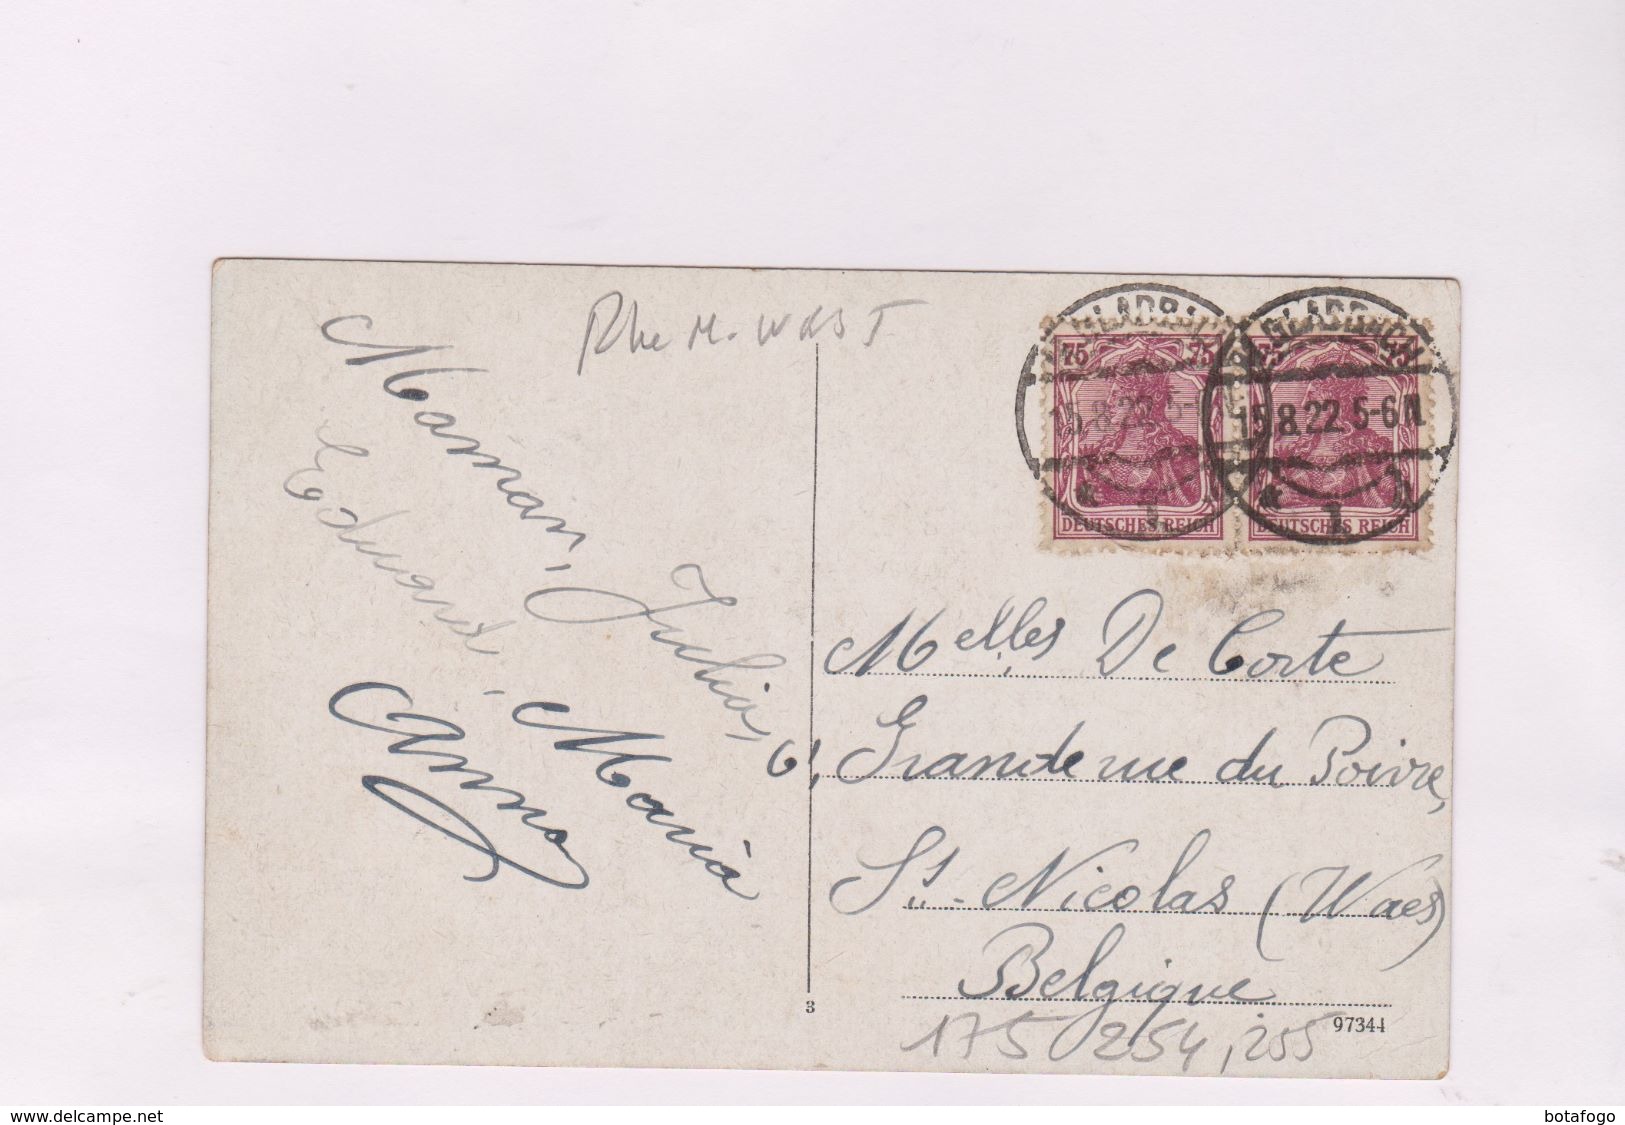 Rhe M. WRST
Maman, Julia,
Edward, Maria
Anna
75 75
DEUTSCHES REICH
GLADBACH
15.8.22.5-
1
75 75
DEUTSCHES REICH
GLADBACH
15.8.22.5-6N.
1
Melles De Corte
61, Grande rue du Poivre,
St. Nicolas (Waes)
Belgique
3
97344
175 254, 255
www.delcampe.net
botafogo